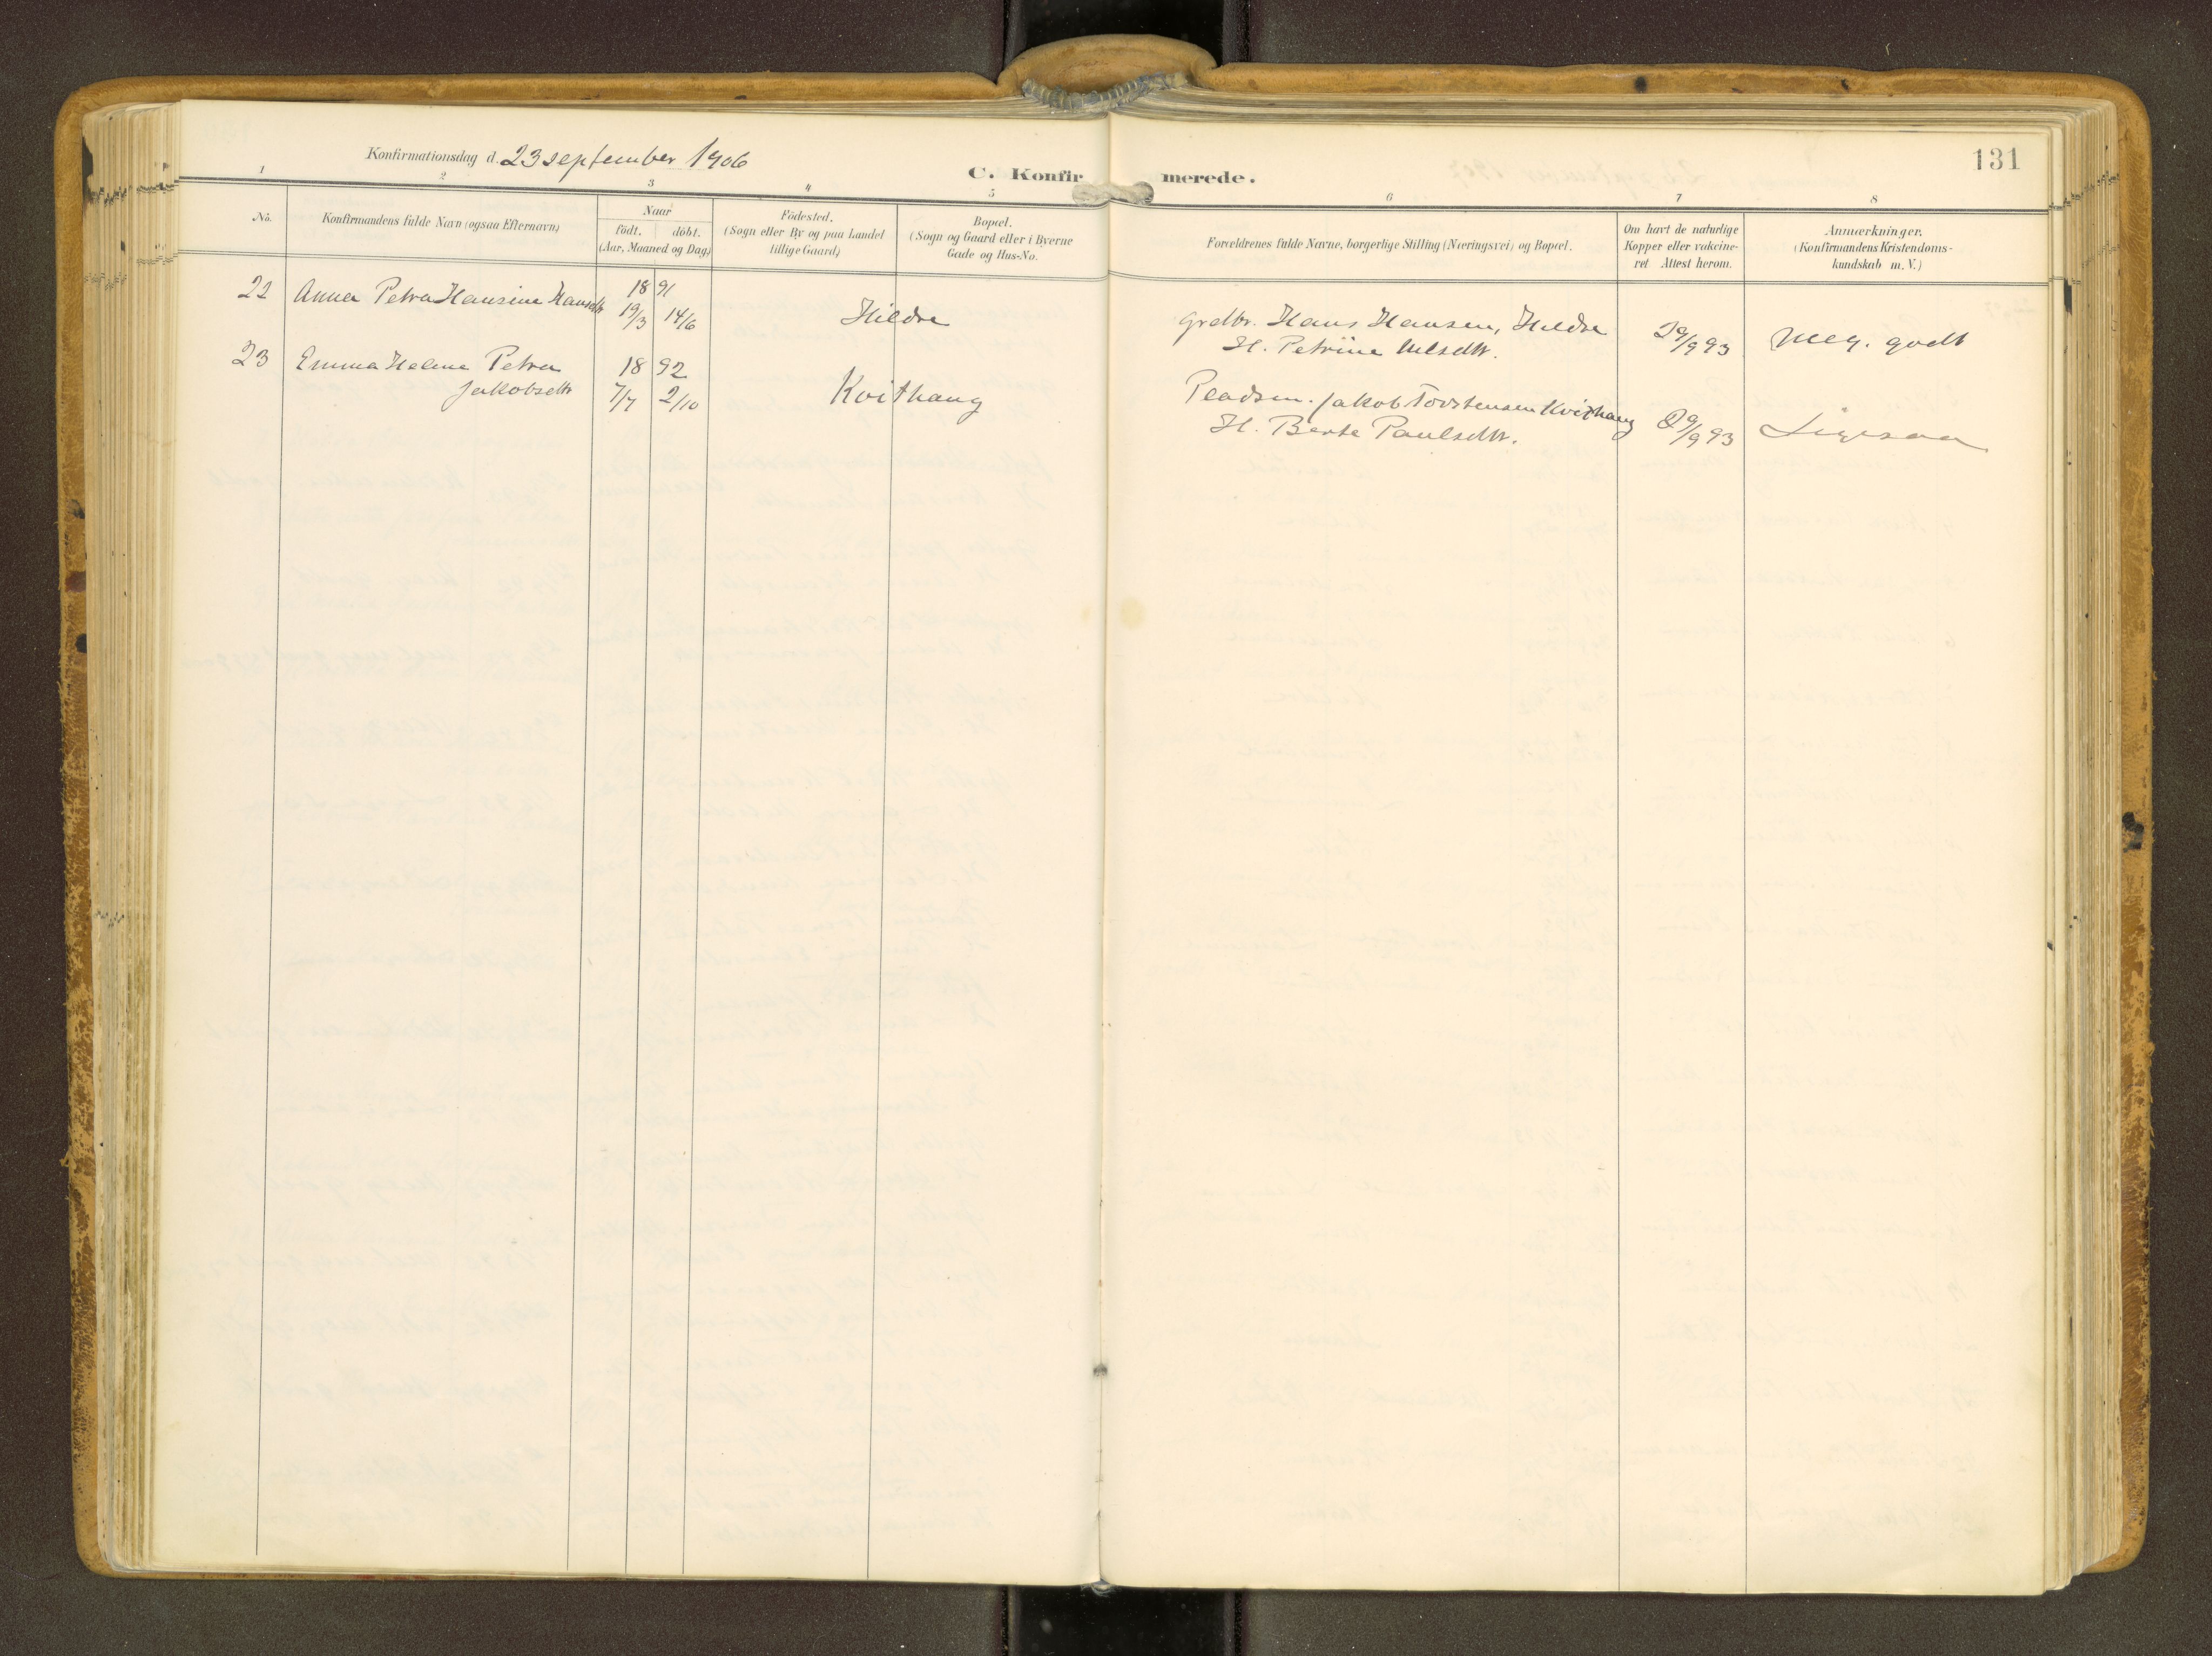 131
Konfirmationsdag d. 23 september 1906
C. Konfirmerede.
1 2 3 4 5 6 7 8
No. Konfirmandens fulde Navn (ogsaa Efternavn)
Naar
født. døbt.
(Aar, Maaned og Dag)
Fødested.
(Sogn eller By og paa Landet
tillige Gaard)
Bopæl.
(Sogn og Gaard eller i Byerne
Gade og Hus-No.
Forældrenes fulde Navne, borgerlige Stilling (Næringsvei) og Bopæl.
Om havt de naturlige
Kopper eller vakcine-
ret Attest herom.
Anmærkninger.
(Konfirmandens Kristendoms-
kundskab m. V.)
22 Anna Petra Hansine Hansdtr 18 91
19/3 14/6 Hildre
Grdbr. Hans Hansen, Hildre
H. Petrine
29/9 93 Meg. godt
23 Emma Helene Petra
Jakobsdtr 18 92
7/7 2/10 Kvithaug
Jakob Torstensen Kvithaug
H. Berte Paulsdtr.
29/9 93 Ligesaa